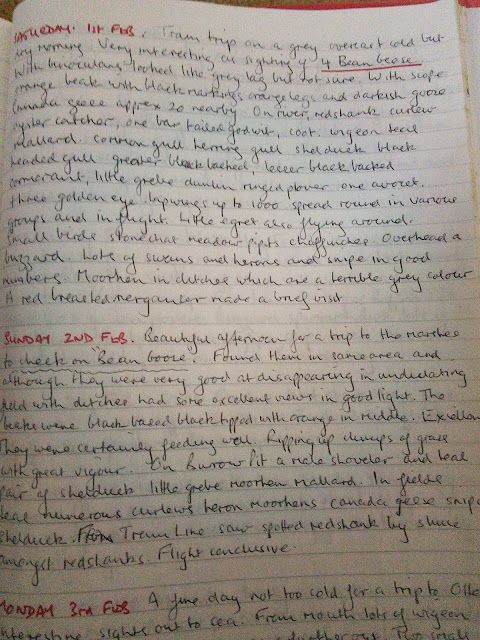 SATURDAY. 1ST FEB. Tram trip on a grey overcast cold but
dry morning. Very interesting as sighting of 4 Bean Geese
With binoculars looked like grey lag but not sure. With scope
orange beak with black markings orange legs and darkish goose
Canada geese approx 20 nearby. On river, redshank curlew
oyster catcher, one bar tailed godwit, coot, wigeon teal
mallard. common gull herring gull shelduck black
headed gull greater black backed, lesser black backed
cormorant, little grebe dunlin ringed plover one avocet.
three golden eye. Lapwings up to 1000 spread round in various
groups and in flight. Little egret also flying around.
Small birds stonechat meadow pipits chaffinches. Overhead a
buzzard. Lots of swans and herons and snipe in good
numbers. Moorhen in ditches which are a terrible grey colour
A red breasted merganser made a brief visit
SUNDAY 2ND FEB. Beautiful afternoon for a trip to the marshes
to check on Bean Goose. Found them in same area and
although they were very good at disappearing in undulating
field with ditches had some excellent views in good light. The
beaks were black based black tipped with orange in middle. Excellent
They were certainly feeding well. Ripping up clumps of grass
with great vigour. On Burrow Pit a male shoveler and teal
pair of shelduck little grebe moorhen mallard. In fields
teal numerous curlews heron moorhens canada geese snipe
shelduck. From Tram Line saw spotted redshank by sluice
amongst redshanks. Flight conclusive.
MONDAY 3RD FEB A fine day not too cold for a trip to
interesting sights out to sea. From mouth lots of wigeon